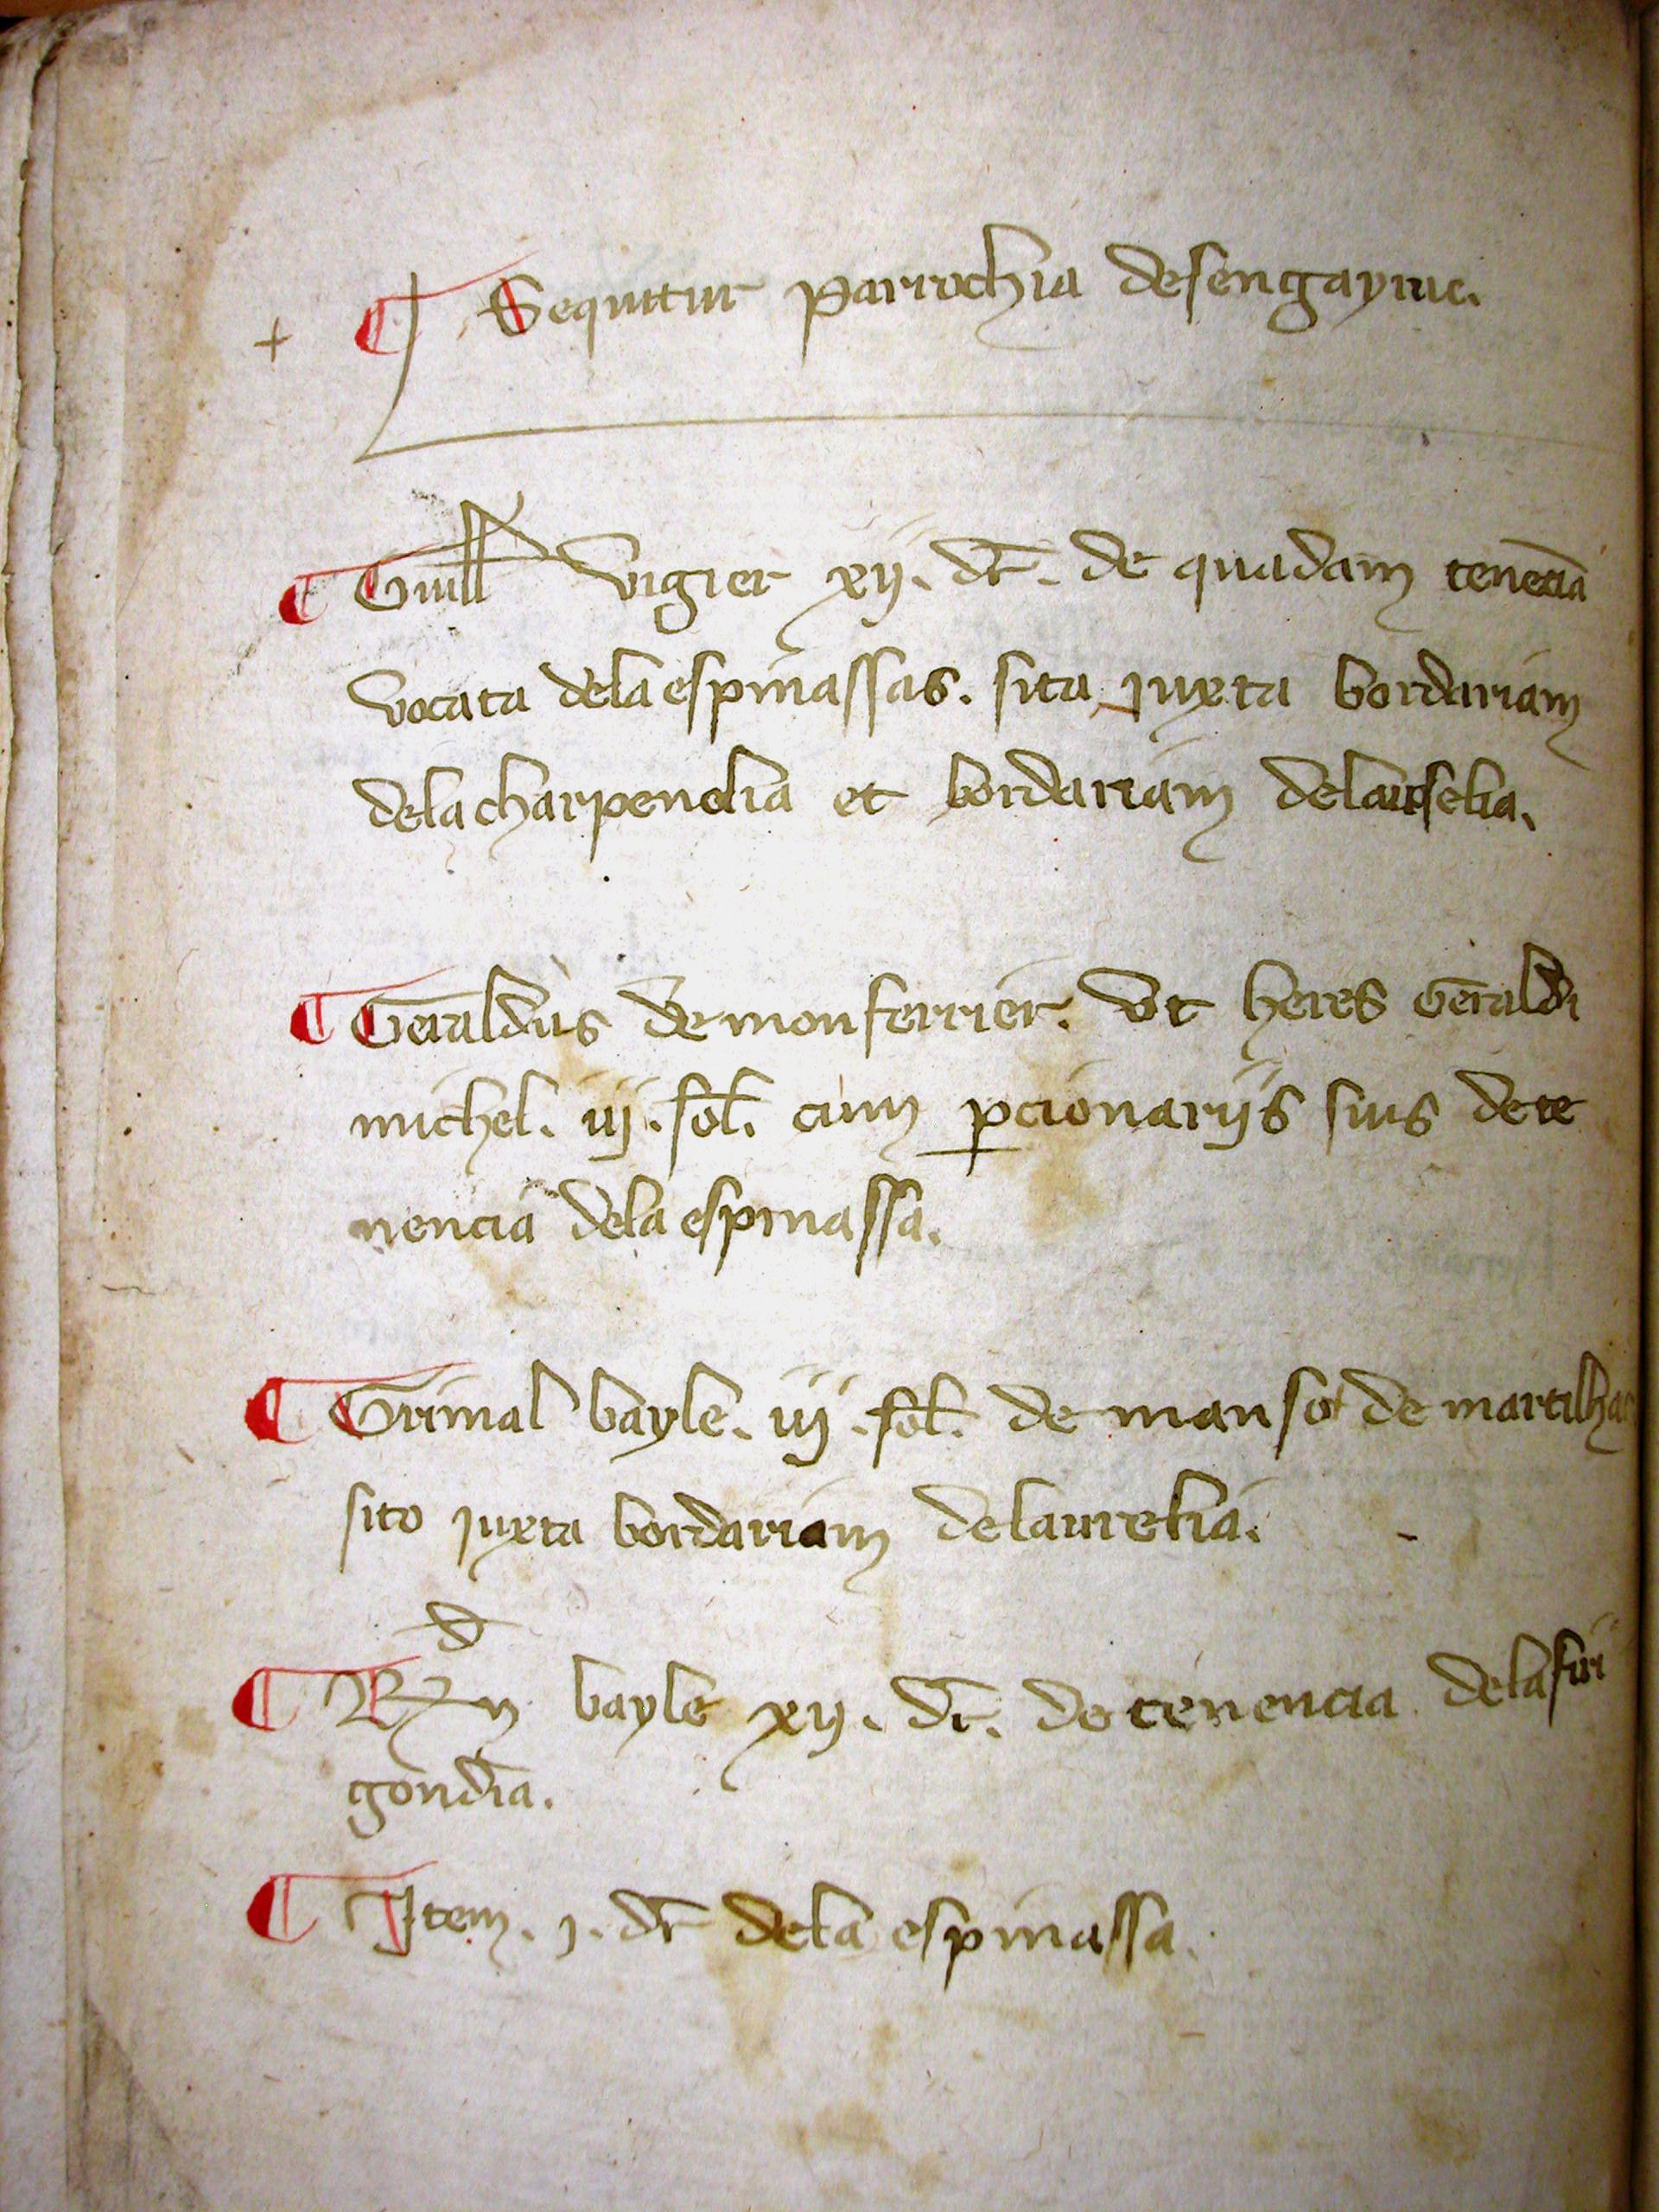 + ¶ Sequitur parrochia desengaynac.
¶ Guill̃ vigier xij. dr̃. de quadam tenẽcia
vocata dela espinassas. sita juxta bordariam
dela charpenelia et bordariam
¶ Gẽraldus de monferrier. ut heres Gẽraldi
michel. iij. sol̃. cum ꝑcionarijs suis de te
nencia dela espinassa.
¶ Grimal bayle. iij. sol̃. de manso de martilhac
sito juxta bordariam delaurelia.
¶ bayle xij. dr̃. de tenencia dela
gondia.
¶ Item. j. dr̃ dela espinassa.